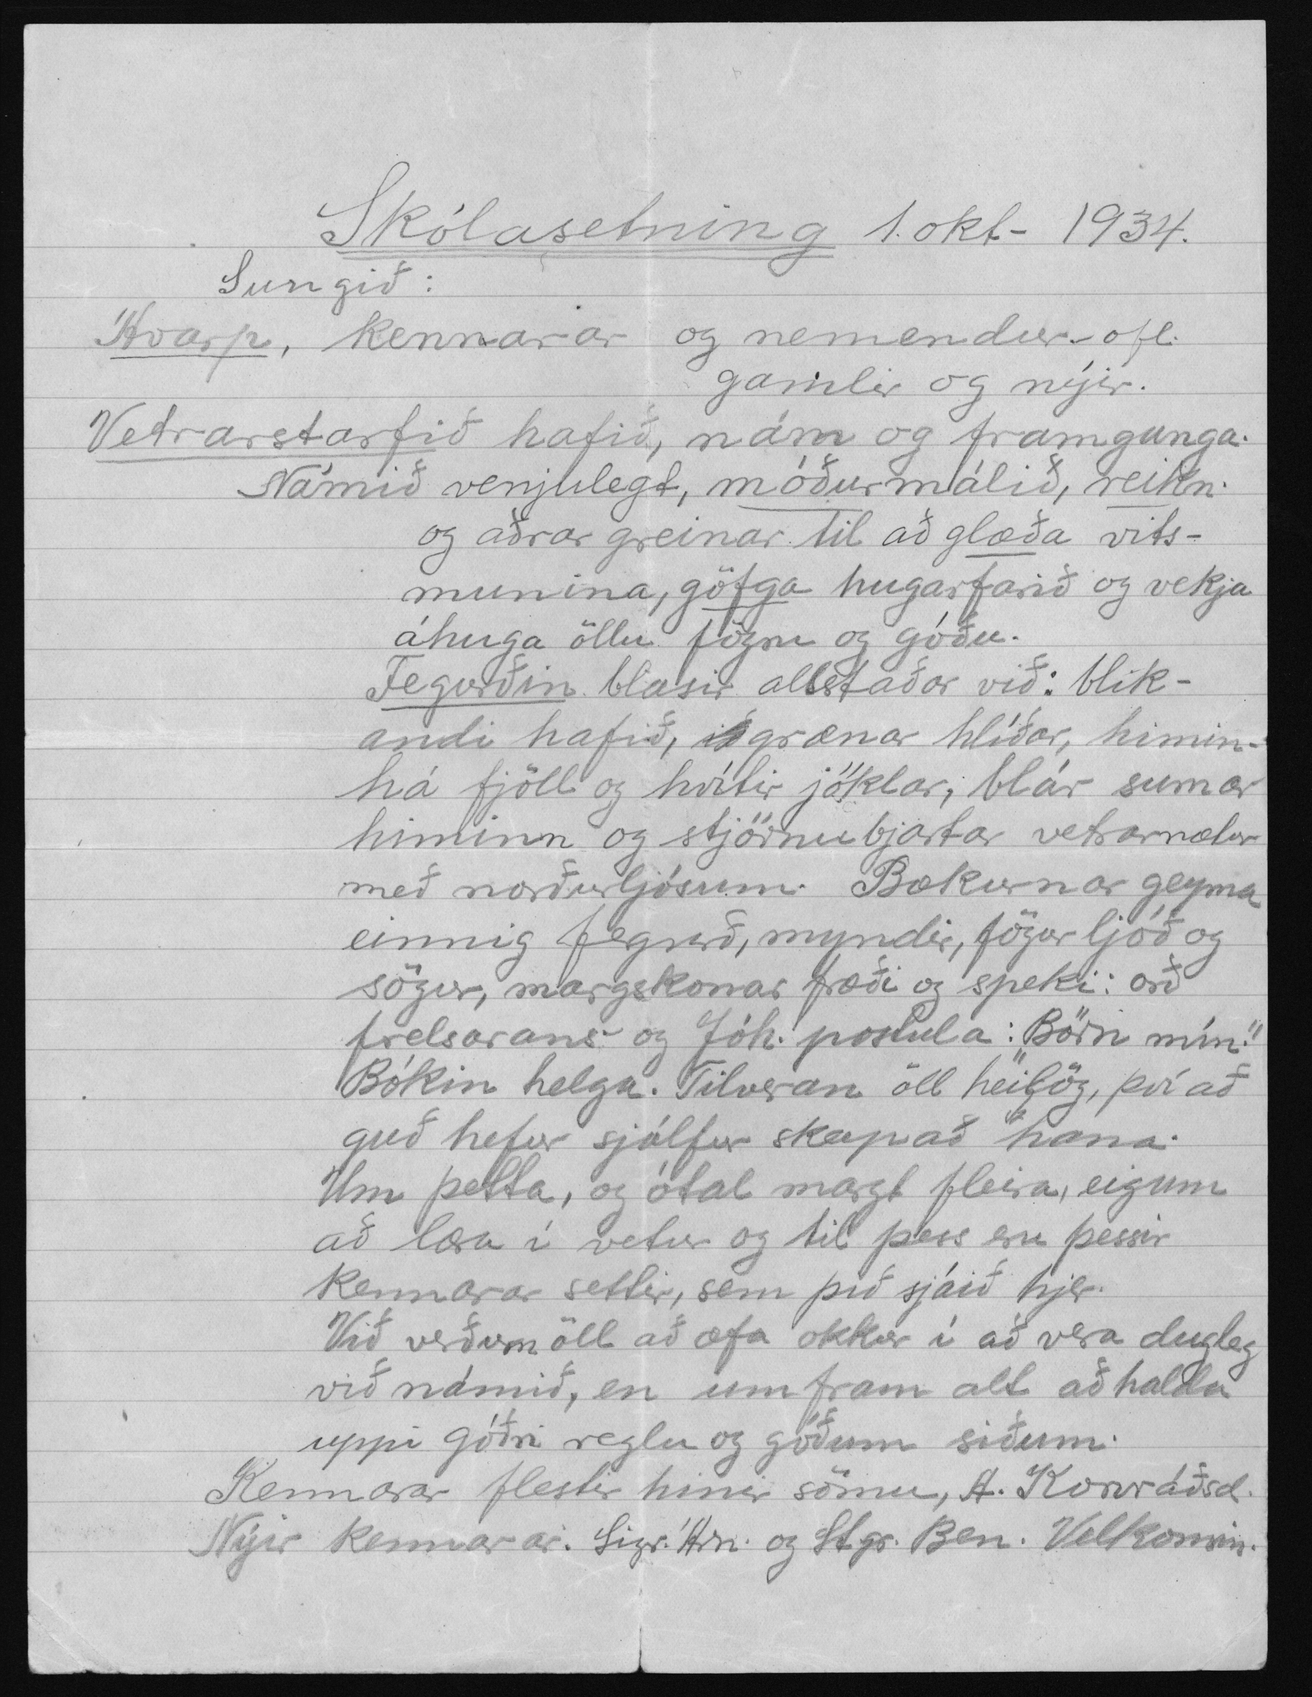 Skólasetning 1. okt - 1934.
Sungið:
Ávarp, kennarar og nemendur - ofl.
gamlir og nýir.
Vetrarstarfið hafið, nám og framganga.
Námið venjulegt, móðurmálið, reikn.
og aðrar greinar til að glæða vits-
munina, göfga hugarfarið og vekja
áhuga öllu fögru og góðu.
Fegurðin blasir allstaðar við: blik-
andi hafið, grænar hlíðar, himin-
há fjöll og hvítir jöklar, blár sumar
himinn og stjörnubjartar vetrarnætur
með norðurljósum. Bækurnar geyma
einnig fegurð, myndir, fögur ljóð og
sögur, margskonar fræði og speki: orð
frelsarans og Jóh. postula: Börn mín!"
Bókin helga. Tilveran öll heilög, því að
guð hefur sjálfur skapað hana.
Um þetta, og ótal margt fleira, eigum
að læra í vetur og til þess eru þessir
kennarar settir, sem þið sjáið hjer.
Við verðum öll að æfa okkur í að vera dugleg
við námið, en um fram alt að halda
uppi góðri reglu og góðum siðum.
Kennarar flestir hinir sömu, A. Konráðsd.
Nýir kennarar. Sigr. Árn. og Stgr. Ben. Velkomin.